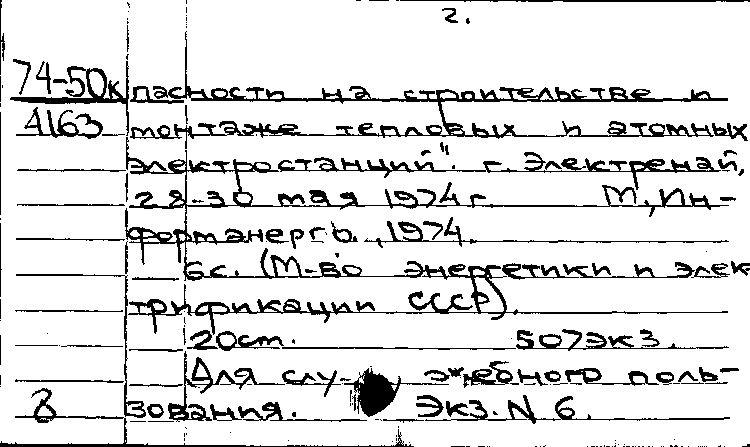 2.
74-50к пасности на строительстве и
4163 монтаже тепловых и атомных
электростанций". г. Электренай,
28-30 мая 1974г. М., Ин-
форманерго., 1974.
6с. (М-во энергетики и элек
трификации СССР).
20см. 507экз.
Для слу- жебного поль-
8 зования. Экз. N 6.